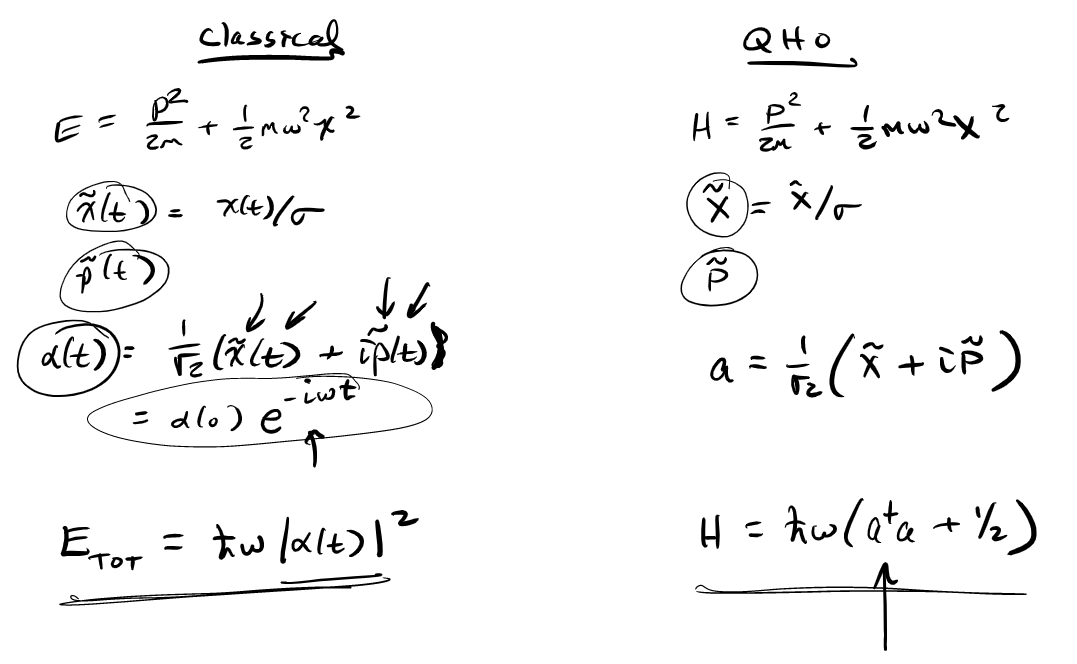 Classical
E = p²/2m + ½ mω²x²
x̃(t) = x(t)/σ
p̃(t)
α(t) = 1/√2 (x̃(t) + ip̃(t))
= α(0) e^{-iωt}
E_TOT = ħω |α(t)|²
QHO
H = P²/2m + ½ mω²X²
X̃ = x̂/σ
P̃
a = 1/√2 (x̃ + iP̃)
H = ħω(a†a + ½)